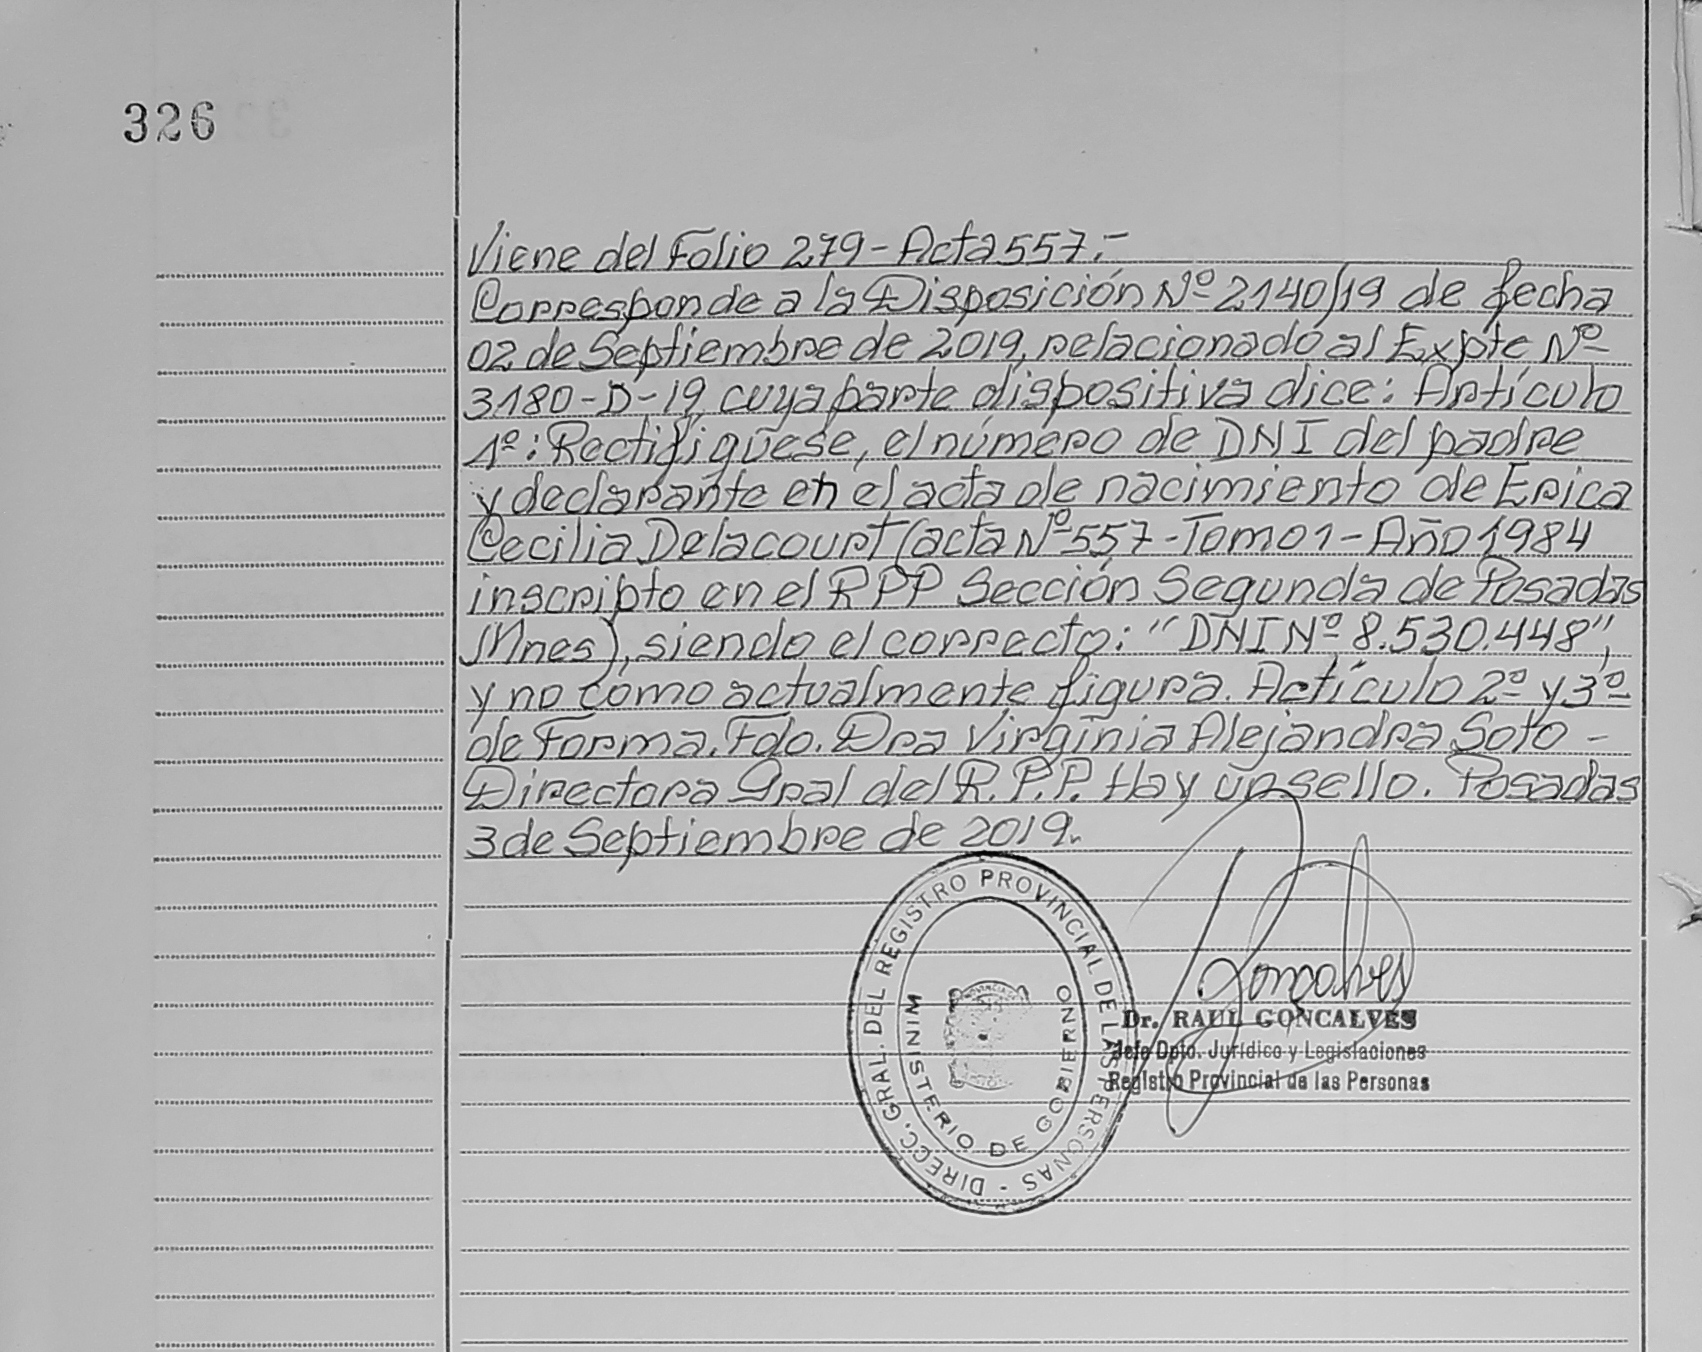 326
Viene del Folio 279 - Acta 557.-
Corresponde a la Disposición Nº 2140/19 de fecha
02 de Septiembre de 2019, relacionado al Expte Nº
3180-D-19, cuya parte dispositiva dice: Artículo
1º: Rectifíquese, el número de DNI del padre
y declarante en el acta de nacimiento de Erica
Cecilia Delacourt (acta Nº 557 - Tomo 1 - Año 1984
inscripto en el RPP Sección Segunda de Posadas
Mnes), siendo el correcto: "DNI Nº 8.530.448",
y no como actualmente figura. Actículo 2º y 3º
de Forma. Fdo. Dra Virginia Alejandra Soto -
Directora Gral del R.P.P. Hay un sello. Posadas
3 de Septiembre de 2019.
DIRECC. GRAL. DEL REGISTRO PROVINCIAL DE LAS PERSONAS -
MINISTERIO DE GOBIERNO
Goncalves
Dr. RAUL GONCALVES
Jefe Dpto. Jurídico y Legislaciones
Registro Provincial de las Personas